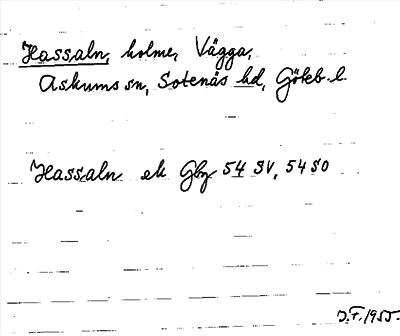 Hassaln, holme, Vägga,
Askums sn, Sotenäs hd, Göteb. l.
Hassaln ek Gbg 54 SV, 54 SO
1955.